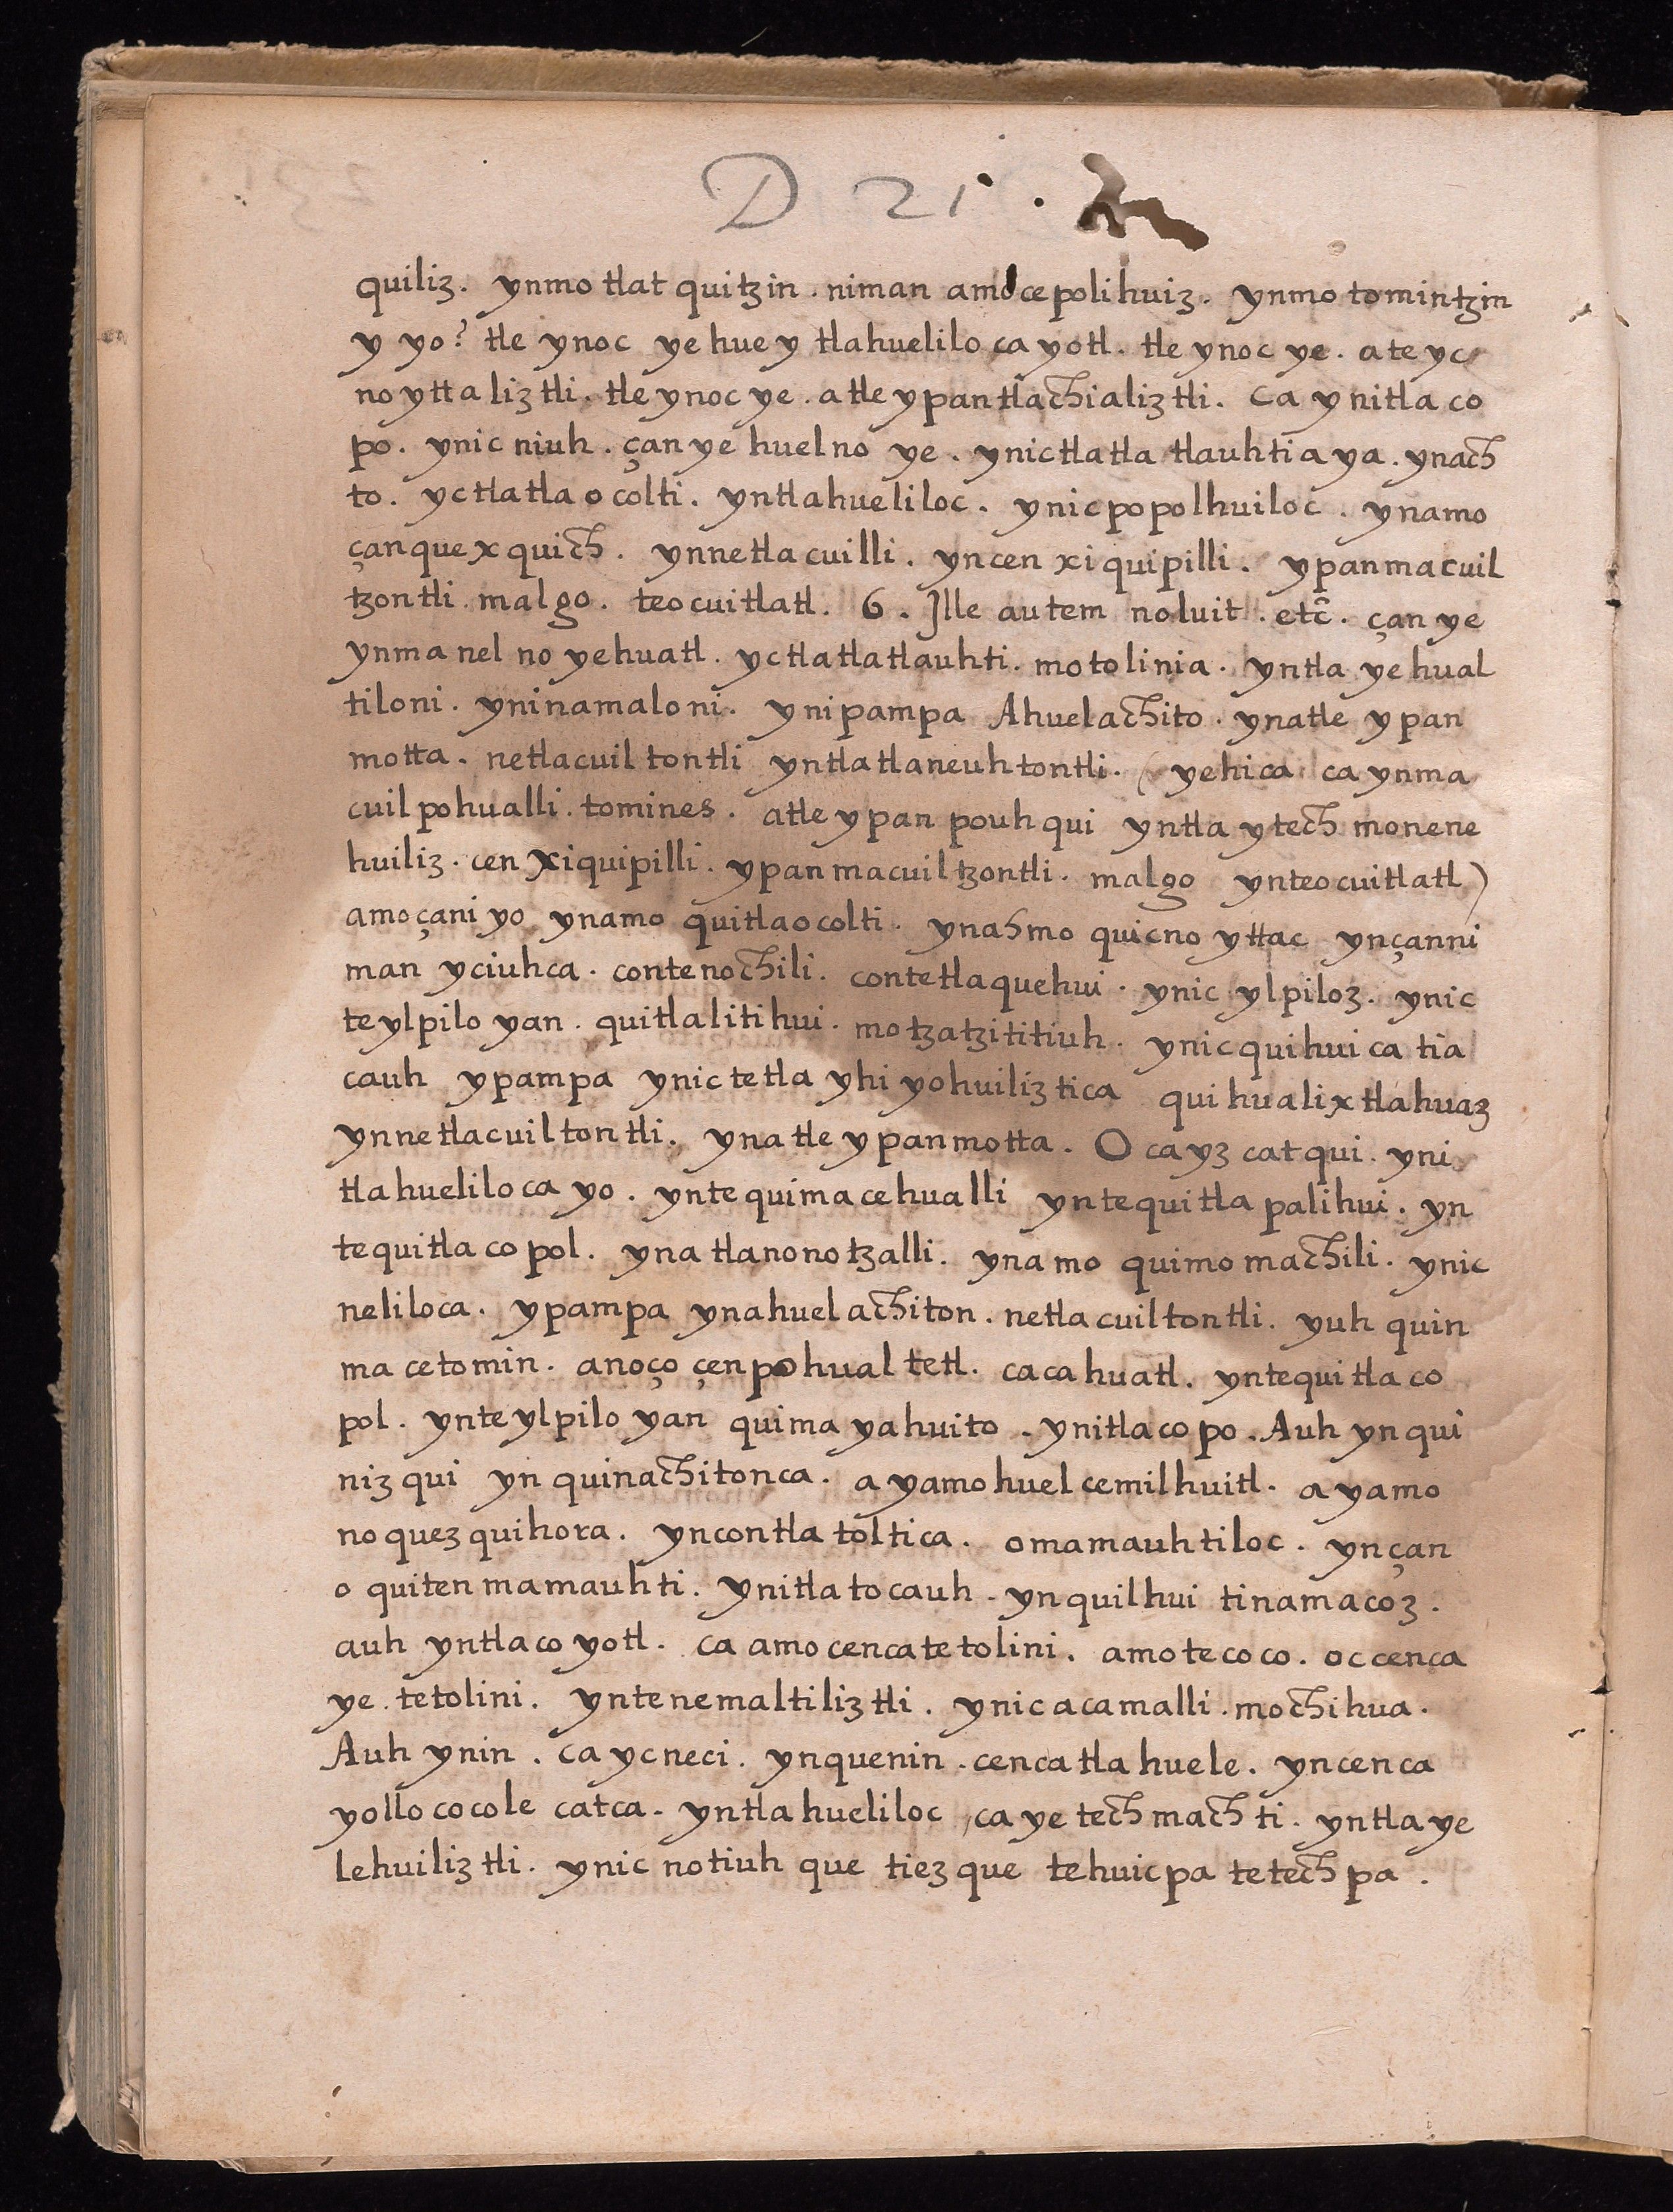 D 21 .
quiliz. ynmo tlat quitzin . niman amo ce polihuiz. ynmo tomintzin
y yo? tle ynoc ye hue y tlahuelilo ca yotl. tle ynoc ye. a te yc
no ytta liztli. tle ynoc ye. atle ypantlachializtli. Ca y nitla co
po. ynic niuh. çan ye huel no ye. ynictlatla tlauhtia ya. ynach
to. yctlatla o colti. yntlahueliloc. ynic po polhuiloc. ynamo
çanquexquich. ynnetla cuilli. yncen xiquipilli. ypan macuil
tzontli. malgo. teocuitlatl. 6. Jlle autem noluit. etc̃. çan ye
ynma nel no yehuatl. yctlatlatlauhti. motolinia. yntla ye hual
tiloni. yninamaloni. ynipampa Ahuelachito. ynatle ypan
motta. netlacuil tontli yntlatlaneuhtontli. ( yehica ca ynma
cuil pohualli. tomines. atle ypan pouhqui yntla ytech monene
huiliz. cen xiquipilli. ypan macuiltzontli. malgo ynteocuitlatl)
amoçani yo ynamo quitlaocolti. ynahmo quicno yttac ynçanni
man yciuhca. contenochili. contetlaquehui. ynic ylpiloz. ynic
te ylpilo yan. quitlalitihui. motzatzititiuh. ynic quihuica tia
cauh ypampa ynic tetla yhi yohuiliztica quihualixtlahuaz
ynnetlacuiltontli. ynatle ypanmotta. O ca yz catqui. yni
tlahueliloca yo. yntequimacehualli yntequitla palihui. yn
tequitla co pol. ynatlanonotzalli. ynamo quimomachili. ynic
neliloca. ypampa ynahuelachiton. netlacuiltontli. yuh quin
ma cetomin. anoço çenpohualtetl. cacahuatl. yntequitlaco
pol. ynte ylpilo yan quima yahuito. ynitlaco po. Auh yn qui
niz qui yn quinachitonca. a yamo huel cemilhuitl. a yamo
no quezquihora. yncontla toltica. omamauhtiloc. ynçan
o quitenmamauhti. ynitlatocauh. ynquilhui tinamacoz.
auh yntlaco yotl. ca amo cencatetolini. amotecoco. occenca
ye. tetolini. yntenemaltiliztli. ynic acamalli. mochihua.
Auh ynin. Ca yc neci. ynquenin. cencatlahuele. yncenca
yollococole catca. yntlahueliloc, ca ye techmachti. yntla ye
lehuiliztli. ynic notiuh que tiez que tehuicpa tetech pa.